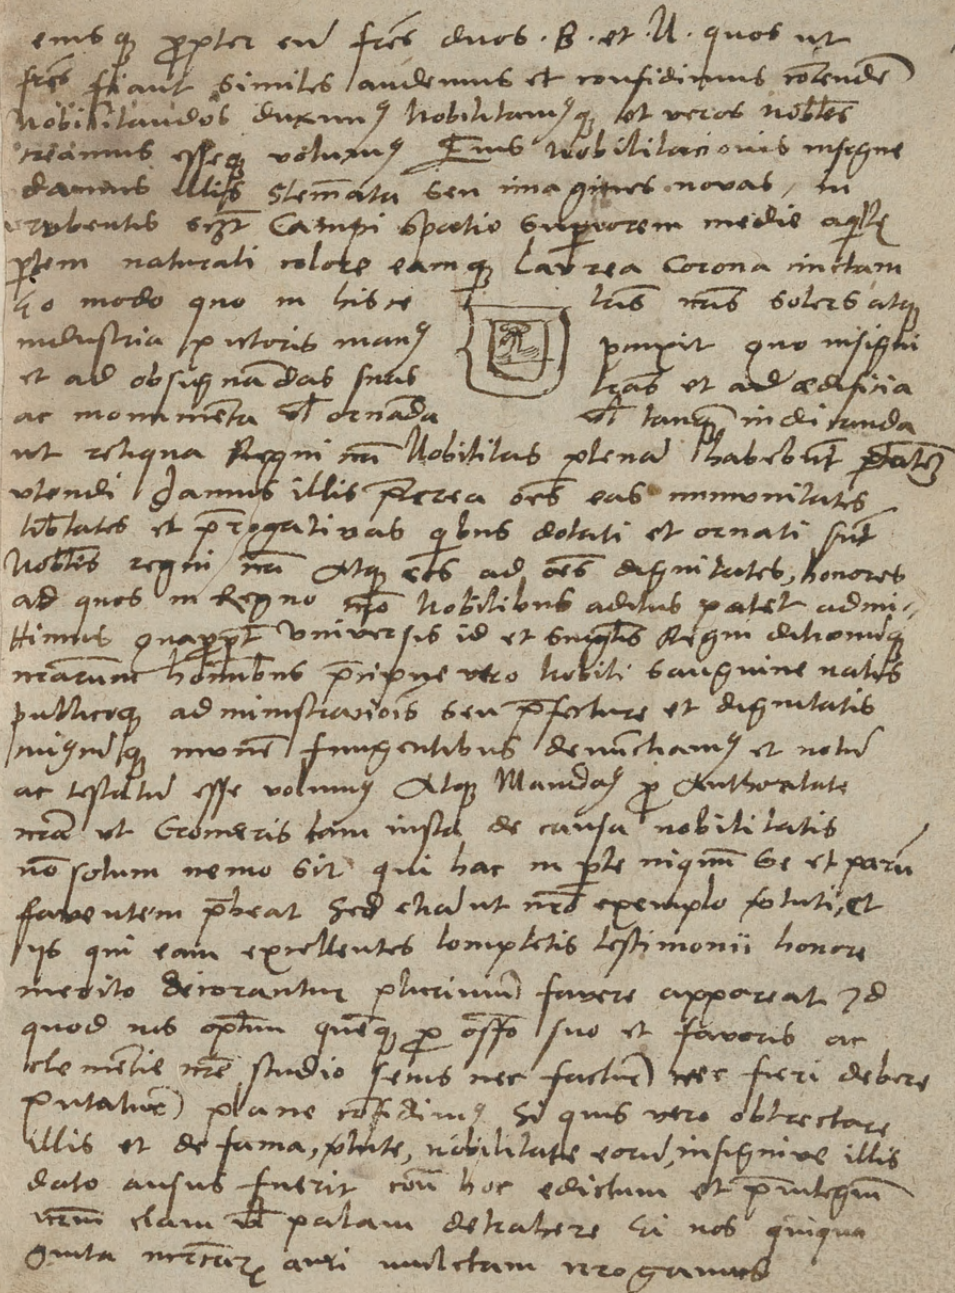 eiusque propter eius frēs duos . B . et . N . quos ut
frēs fiant similes audemus et confidimus cōtendere
Nobilitandos duximus Nobilitamusque et veros nobiles
creamus esseque volumus Eius Nobilitacionis insigne
damus illis Stēmata seu imagines novas, in
rubentis Campi spatio superiorem medie aquile
ptem naturali colore eamque Laurea Corona cinctam
Eo modo quo in hisce lrās nrās solers atque
industria pictoris manus pinxit quo insigni
et ad obsignādas suas lrās et ad ædificia
ac monumēta vl ornāda vl tanquā indicanda
ut reliqua Regni nrī Nobilitas plenā habebūt ptātē
utendi Damus illis p̄terea oēs eas immunitates
libtates et p̄rogativas quibus dotati et ornati sūt
Nobiles regni nrī Atque eos ad oēs dignitates, honores
ad quos in Regno nrō Nobilibus aditus patet admi-
ttimus quapropt Universis id et singulis Regni ditionūque
nrarum hominibus p̄cipue vero Nobili sanguine natis
publiceque administraciōis seu p̄fecture et dignitatis
munē fungentibus denunctiamus et notū
ac testatū esse volumus Atque Mandamus pro Authoritate
nrā ut tam iusta de causa nobilitatis
nō solum nemo sit qui hac in pte iniquū se et parū
faventem p̄beat Sed etiā ut nrō exemplo et
ijs qui eam excellentes completis testimonii honore
merito decorantur plurimū favere appareat Id
quod nos optīm quēque pro suo et favoris ac
clemētie nrē studio secus nec factū nec fieri debere
putatur plane cōfidimus Si quis vero obtrectare
illis et de fama, nobilitate eorū, insignive illis
dato ausus fuerit cōn hoc edictum et p̄vilegium
nrm clam vl palam detrahere Ei nos quinqua
ginta auri mulctam irrogamus